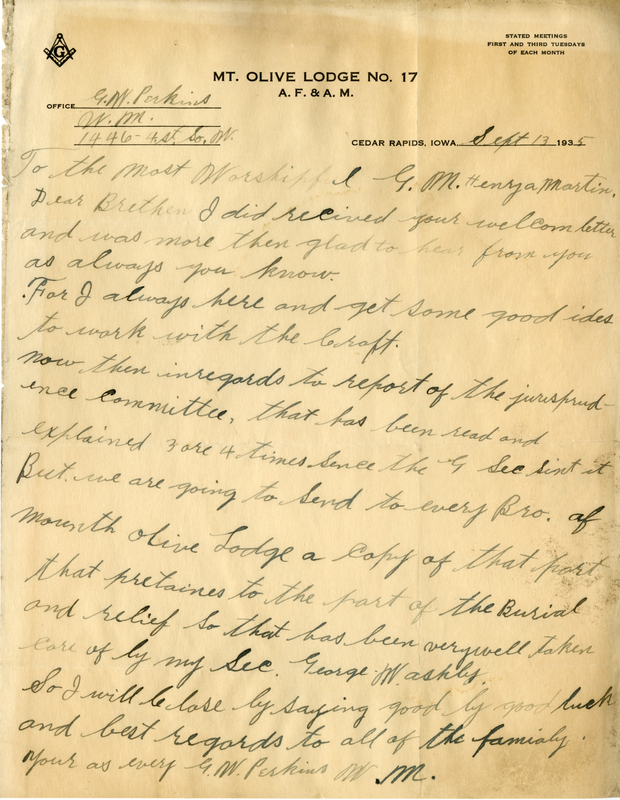 G
STATED MEETINGS
FIRST AND THIRD TUESDAYS
OF EACH MONTH
MT. OLIVE LODGE NO. 17
A. F. & A. M.
OFFICE G.W. Perkins
W. M.
1446-4st. So. W.
CEDAR RAPIDS, IOWA, Sept 13 1935
To the Most Worshipful G. M. Henry a Martin.
Dear Brethen I did recived your welcom letter
and was more then glad to hear from you
as always you know.
For I always here and get some good ides
to work with the Craft.
now then inregards to report of the jurisprud-
ence committee, that has been read and
explained 3 ore 4 times sence the G Sec sint it
But we are going to send to every Bro. of
mounth Olive Lodge a Copy of that part
that pretaines to the part of the Burial
and relief so that has been verywell taken
care of by my Sec. George W ashby.
So I will Close by saying good by good luck
and best regards to all of the famialy.
Your as every G.W. Perkins W. M.